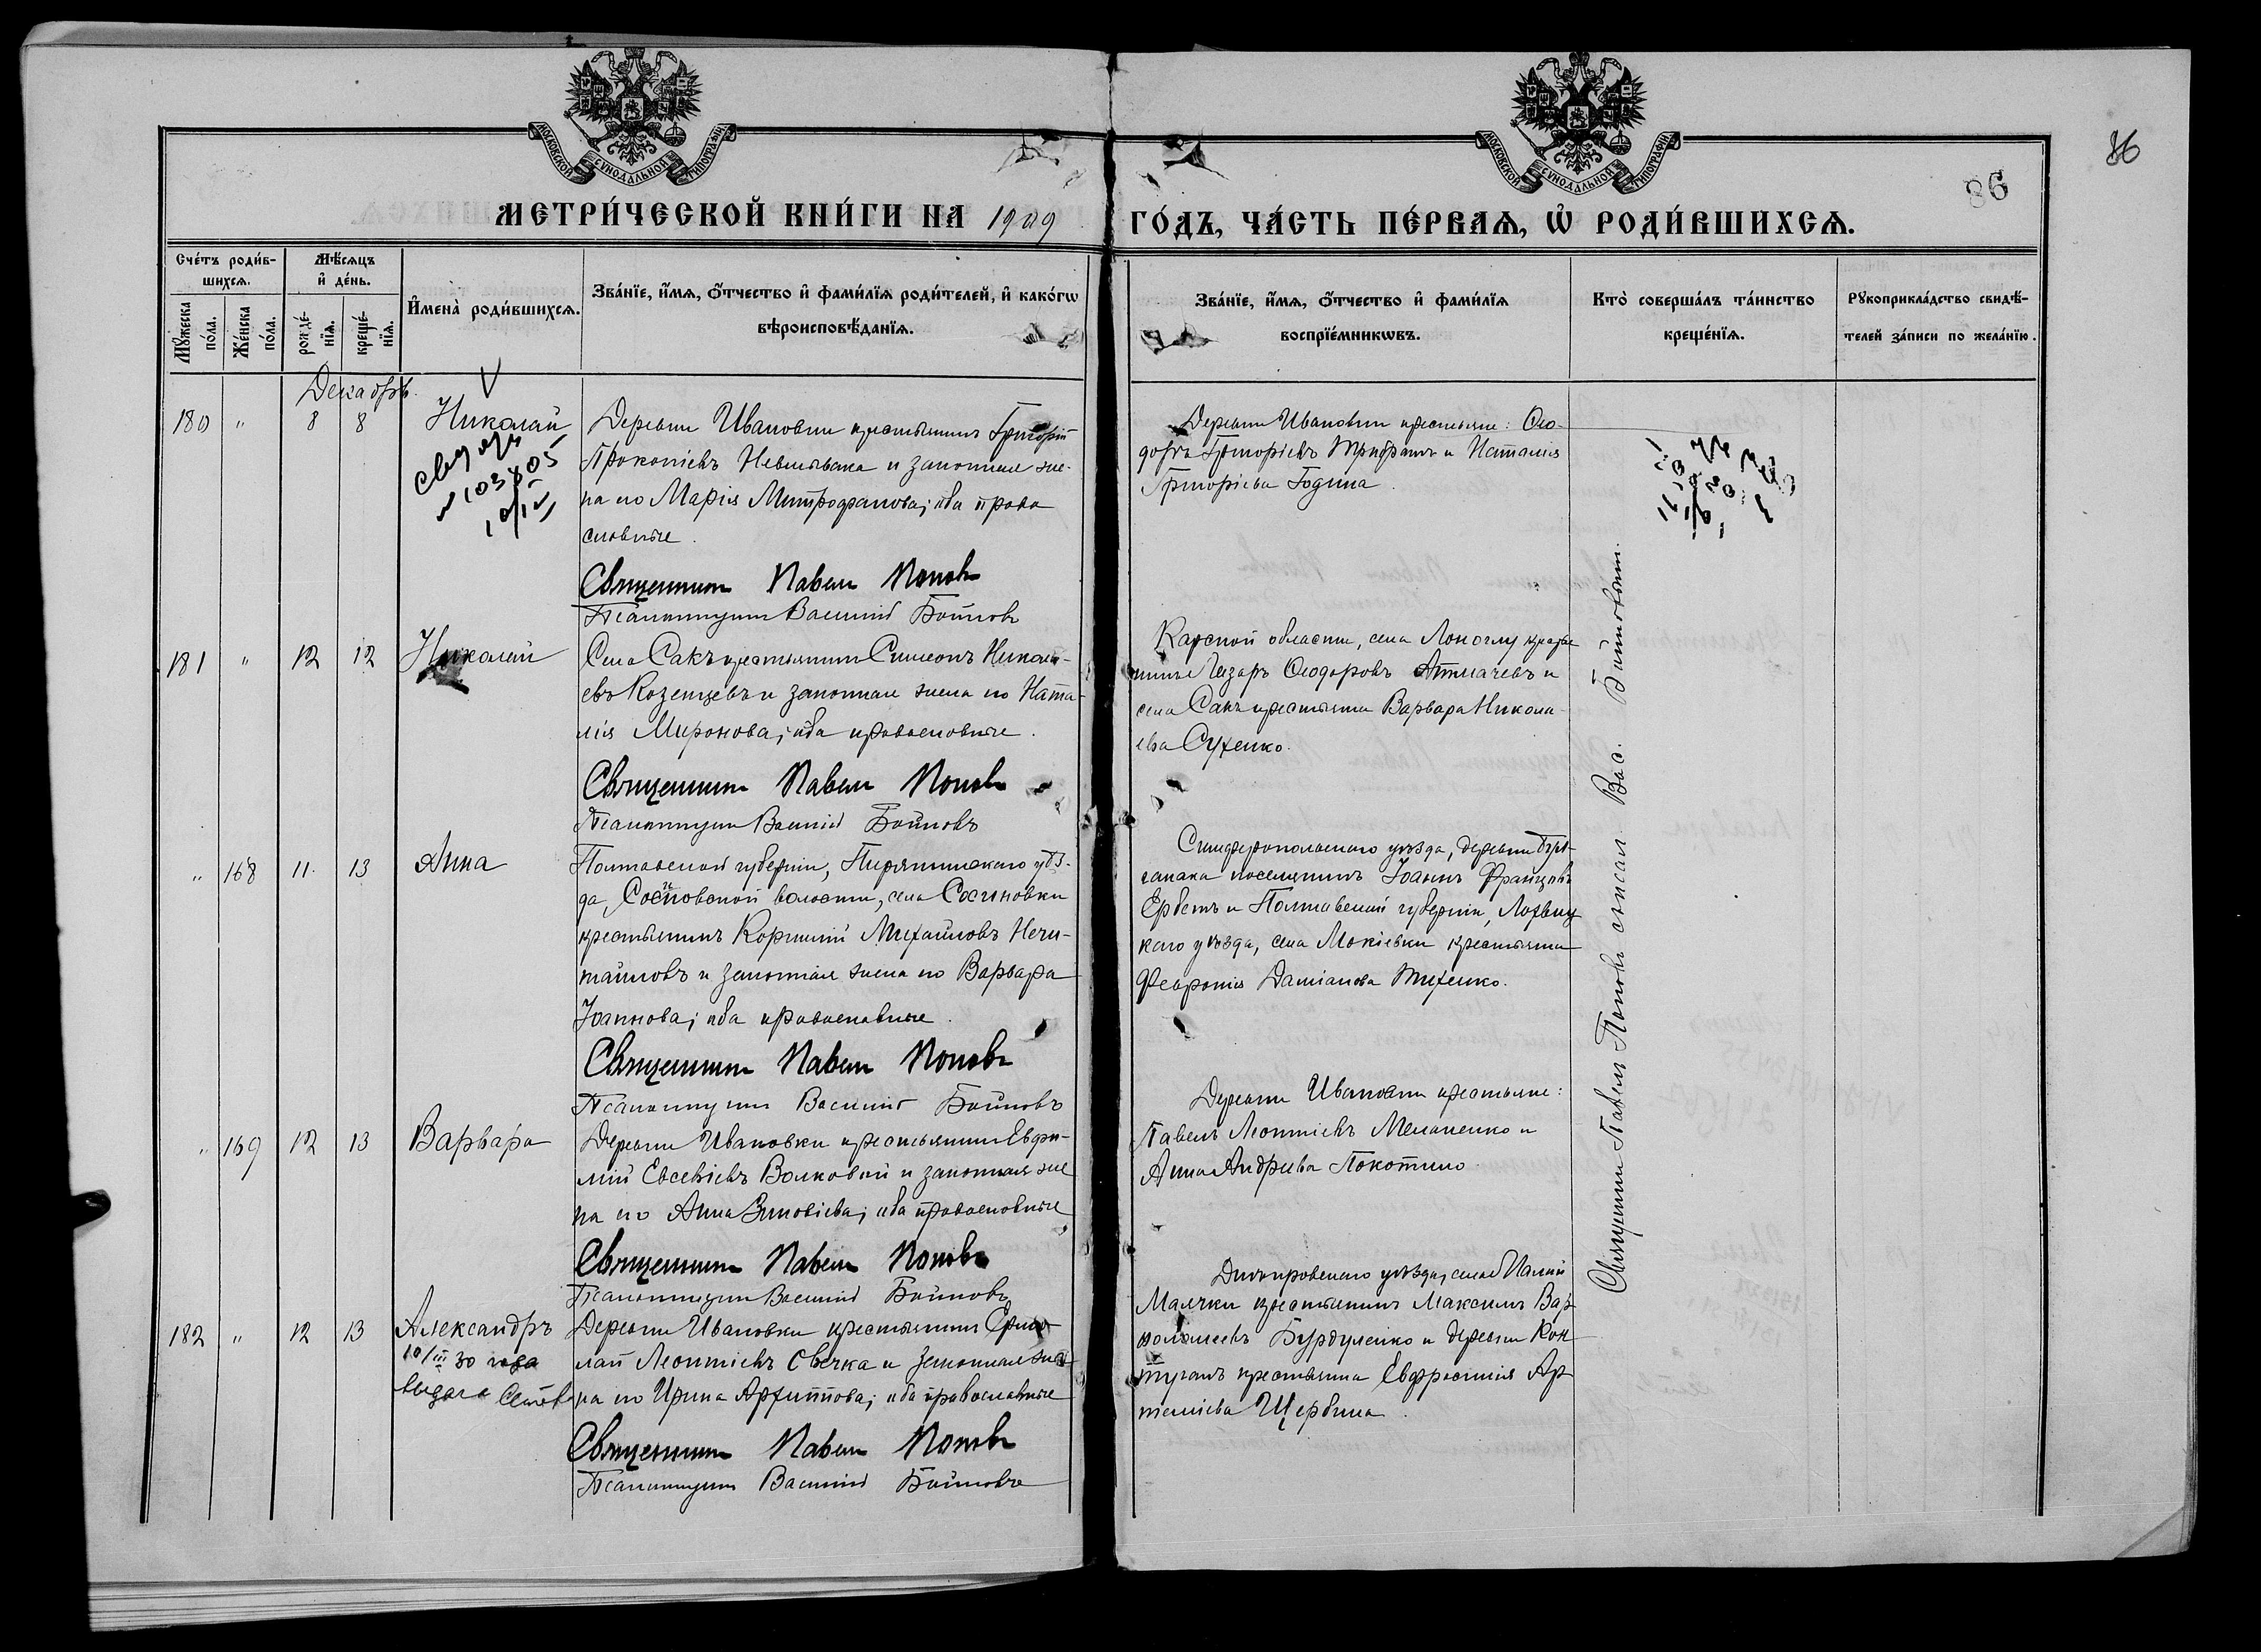 МОСКОВСКОЙ СѴНОДАЛЬНОЙ ТИПОГРАФІИ
МЕТРИ́ЧЕСКОЙ КНИ́ГИ НА 1909
МОСКОВСКОЙ СѴНОДАЛЬНОЙ ТИПОГРАФІИ
ГО́ДЪ, ЧА́СТЬ ПЕ́РВАѦ, Ѡ҆ РОДИ́ВШИХСѦ.
86
86
Сче́тъ роди́в-
шихсѧ.
Мѣ́сѧцъ
и҆ де́нь.
Мꙋ́жеска по́ла.
Же́нска по́ла.
рожде́-нїѧ.
креще́-нїѧ.
И҆мена̀ роди́вшихсѧ.
Зва́нїе, и҆́мѧ, ѻ҆́тчество и҆ фами́лїѧ роди́телей, и҆ како́гѡ
вѣроисповѣ́данїѧ.
Зва́нїе, и҆́мѧ, ѻ҆́тчество и҆ фами́лїѧ
воспрїе́мникѡвъ.
Кто̀ соверша́лъ та́инство
креще́нїѧ.
Рꙋкоприкла́дство свидѣ́-
телей за́писи по жела́нїю.
Декабрь.
180 " 8 8 Николай
103405
10/IV
Деревни Ивановки крестьянинъ Григорій
Прокопіевъ и законная же-
на его Марія Митрофанова; оба право
славные.
Священникъ Павелъ Поповъ
Псаломщикъ Василій Бойковъ
Деревни Ивановки крестьяне: Ѳео-
доръ Григоріевъ и Наталія
Григоріева Година.
181 " 12 12 Николай
Села Сакъ крестьянинъ Симеонъ Никола-
евъ Козенцевъ и законная жена его Ната-
лія Миронова; оба православные.
Священникъ Павелъ Поповъ
Псаломщикъ Василій Бойковъ
Карской области, села крестья
нинъ Ѳеодоровъ Атмачевъ и
села Сакъ крестьянка Варвара Никола-
ева Сухенко.
" 168 11 13 Анна
Полтавской губерніи, Пирятинскаго уѣз-
да, волости, села
крестьянинъ Корнилій Михайловъ Нечи-
тайловъ и законная жена его Варвара
Іоаннова; оба православные.
Священникъ Павелъ Поповъ
Псаломщикъ Василій Бойковъ
Симферопольскаго уѣзда, деревни
поселянинъ Іоаннъ Францовъ
Ербстъ и Полтавской губерніи, Лохвиц
каго уѣзда, села Мокіевки крестьянка
Феоронія Даміанова Тихенко.
" 169 12 13 Варвара
Деревни Ивановки крестьянинъ Евфи-
мій Евсевіевъ Волковой и законная же
на его Анна Зиновіева; оба православные
Священникъ Павелъ Поповъ
Псаломщикъ Василій Бойковъ
Деревни Ивановки крестьяне:
Павелъ Леонтіевъ Мелашенко и
Анна Андреева Покотило.
182 " 12 13 Александръ
10/III 30 года
выдано
Деревни Ивановки крестьянинъ Ермо-
лай Леонтіевъ Свечка и законная же-
на его Ирина Архиппова; оба православные
Священникъ Павелъ Поповъ
Псаломщикъ Василій Бойковъ
Днѣпровскаго уѣзда, села Малой
Маячки крестьянинъ Максимъ Вар
ѳоломеевъ Бурдуленко и деревни Кон
туганъ крестьянка Евфросинія Ар
теміева Щербина.
Священникъ Павелъ Поповъ Вас. Бойковымъ.